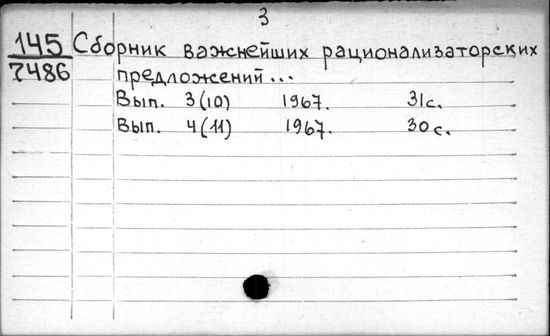 3
145 Сборник важнейших рационализаторских
7486 предложений...
Вып. 3(10) 1967. 31с.
Вып. 4(11) 1967. 30с.